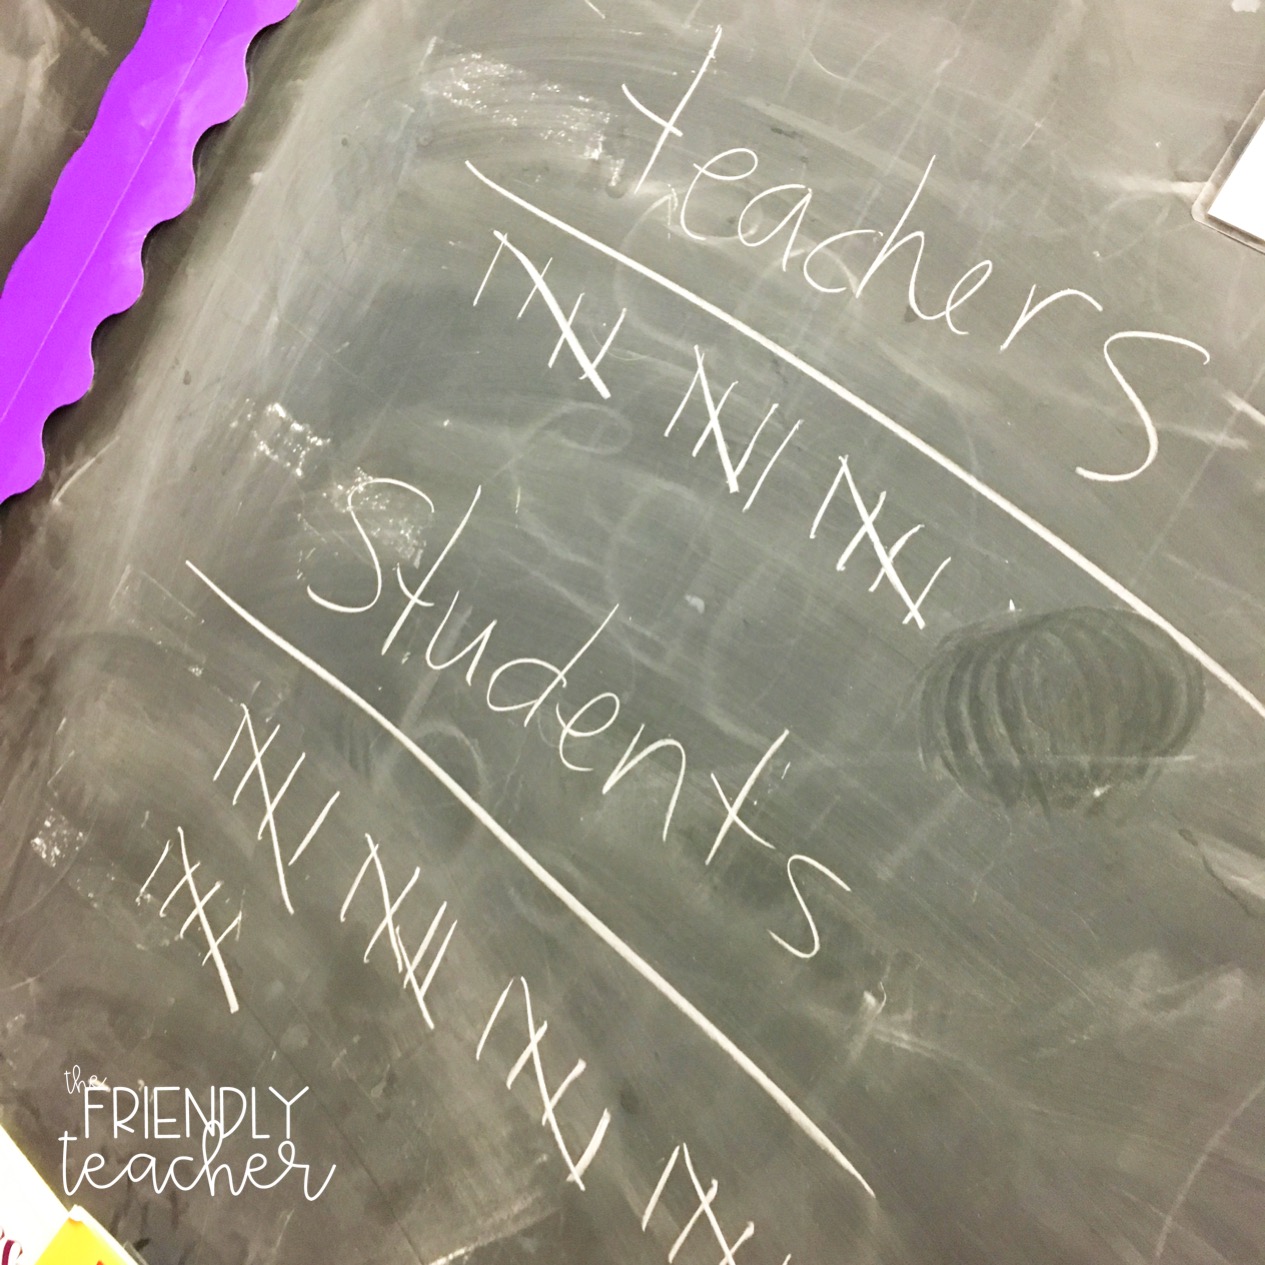 teachers
Students
the
FRIENDLY
teacher